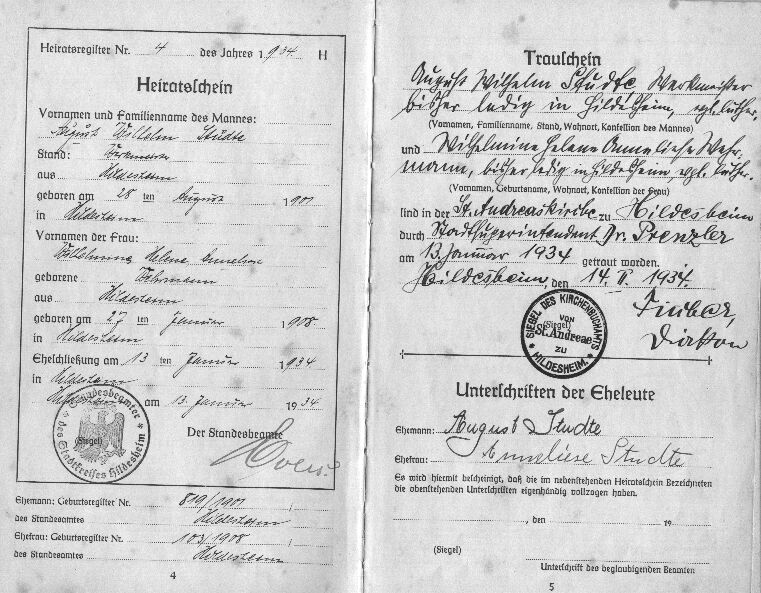 Heiratsregister Nr. 4 des Jahres 1934 H
Heiratsschein
Vornamen und Familienname des Mannes:
August Wilhelm Studte
Stand: Werkmeister
aus Hildesheim
geboren am 28 ten August 1901
in Hildesheim
Vornamen der Frau:
Wilhelmine Helene Anneliese
geborene Wehrmann
aus Hildesheim
geboren am 27 ten Januar 1908
in Hildesheim
Eheschließung am 13 ten Januar 1934
in Hildesheim
Hildesheim am 13. Januar 1934
Standesbeamter des Stadtkreises Hildesheim
(Siegel)
Der Standesbeamte
Ehemann: Geburtsregister Nr. 819/1901
des Standesamtes Hildesheim
Ehefrau: Geburtsregister Nr. 103/1908
des Standesamtes Hildesheim
4
Trauschein
August Wilhelm Studte Werkmeister
bisher ledig in Hildesheim, vgl. luther.
(Vornamen, Familienname, Stand, Wohnort, Konfession des Mannes)
und Wilhelmine Helene Anneliese Wehr-
mann, bisher ledig in Hildesheim, vgl. luther.
(Vornamen, Geburtsname, Wohnort, Konfession der Frau)
sind in der St. Andreaskirche zu Hildesheim
durch Stadtsuperintendent Dr. Prenzler
am 13. Januar 1934 getraut worden.
Hildesheim, den 14. II. 1934.
SIEGEL DES KIRCHENBUCHAMTS
VON
(Siegel)
St. Andreae
ZU
HILDESHEIM.
Unterschriften der Eheleute
Ehemann: August Studte
Ehefrau: Anneliese Studte
Es wird hiermit bescheinigt, daß die im nebenstehenden Heiratsschein Bezeichneten
die obenstehenden Unterschriften eigenhändig vollzogen haben.
, den 19
(Siegel)
Unterschrift des beglaubigenden Beamten
5